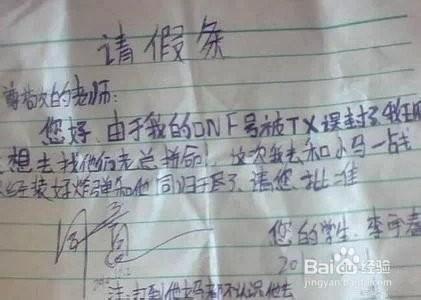 请假条
尊敬的老师:
您好 由于我的DNF号被TX误封了我
想去找他们老总拼命!这次我去和小马一战
经装好炸弹和他同归于尽了,请您批准
同意
您的学生.李宇春
20
注:打到他妈都不认识他
Baidu 经验
jingyan.baidu.com